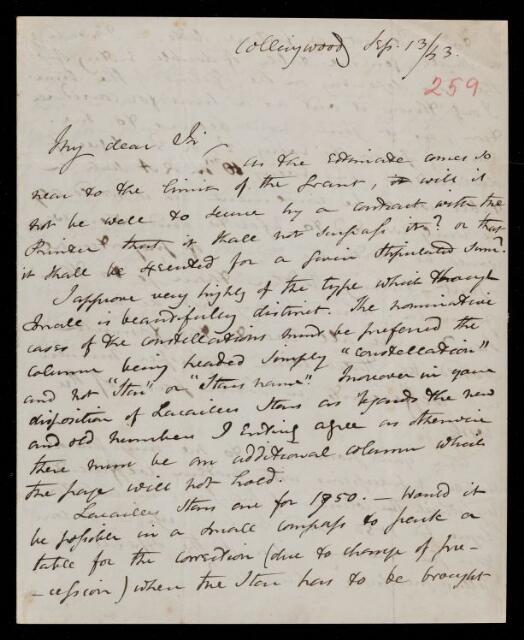 Collingwood Sep. 13/43.
259
My dear Sir
as the Estimate comes so
near to the limit of the Grant, will it
not be well to secure by a contract with the
Printer that it shall not surpass it? or that
it shall be executed for a given stipulated sum?
I approve very highly of the type which though
small is beautifully distinct. The nominative
cases of the constellations must be preferred the
column being headed simply "Constellation"
and not "Star" or "Stars name". Moreover in your
disposition of Lacailles Stars as regards the new
and old numbers I entirely agree as otherwise
there must be an additional column which
the page will not hold.
Lacailles Stars are for 1750. — Would it
be possible in a small compass to frank a
table for the correction (due to change of pre-
-cession) when the Star has to be brought